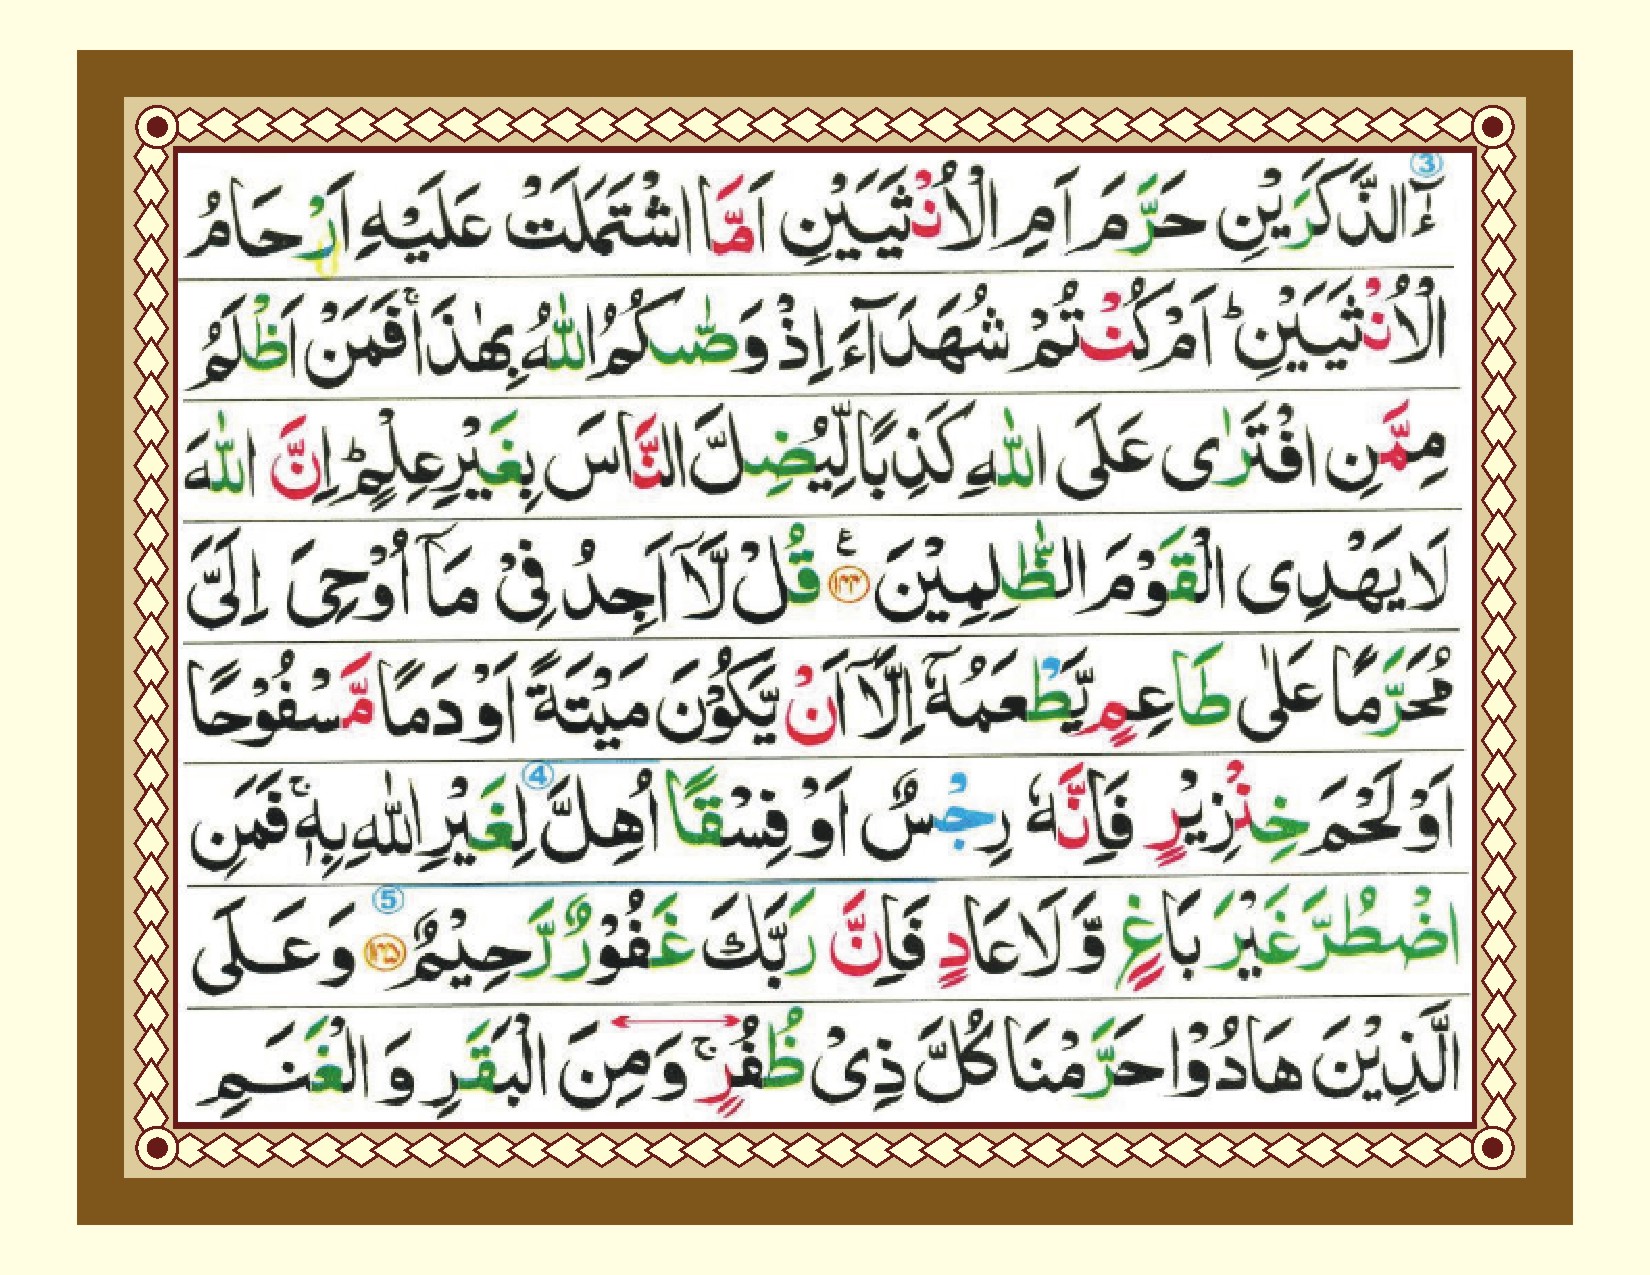 ③
ءٰٓالذَّكَرَيْنِ حَرَّمَ اَمِ الْاُنْثَيَيْنِ اَمَّا اشْتَمَلَتْ عَلَيْهِ اَرْحَامُ
الْاُنْثَيَيْنِ ؕ اَمْ كُنْتُمْ شُهَدَآءَ اِذْ وَصّٰىكُمُ اللّٰهُ بِهٰذَا ۚ فَمَنْ اَظْلَمُ
مِمَّنِ افْتَرٰى عَلَى اللّٰهِ كَذِبًا لِّيُضِلَّ النَّاسَ بِغَيْرِ عِلْمٍ ؕ اِنَّ اللّٰهَ
لَا يَهْدِى الْقَوْمَ الظّٰلِمِيْنَ ع ۱۴۴ قُلْ لَّاۤ اَجِدُ فِىْ مَاۤ اُوْحِىَ اِلَىَّ
مُحَرَّمًا عَلٰى طَاعِمٍ يَّطْعَمُهٗۤ اِلَّاۤ اَنْ يَّكُوْنَ مَيْتَةً اَوْ دَمًا مَّسْفُوْحًا
اَوْ لَحْمَ خِنْزِيْرٍ فَاِنَّهٗ رِجْسٌ اَوْ فِسْقًا اُهِلَّ ④ لِغَيْرِ اللّٰهِ بِهٖ ۚ فَمَنِ
اضْطُرَّ غَيْرَ بَاغٍ وَّلَا عَادٍ فَاِنَّ رَبَّكَ غَفُوْرٌ رَّحِيْمٌ ⑤ ۱۴۵ وَعَلَى
الَّذِيْنَ هَادُوْا حَرَّمْنَا كُلَّ ذِىْ ظُفُرٍ ۚ وَمِنَ الْبَقَرِ وَ الْغَنَمِ